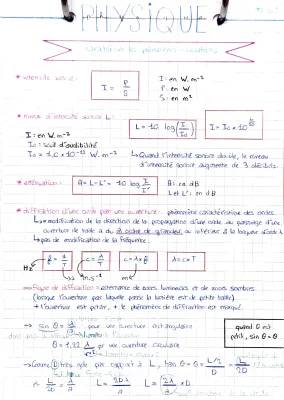 PHYSIQUE
phénomènes ondulatoires
* intensité sonore : I = P/S
I : en W.m⁻²
P : en W
S : en m²
* niveau d'intensité sonore L :
L = 10 log(I/I₀)
I = I₀ × 10^(L/10)
I : en W.m⁻²
I₀ : seuil d'audibilité
I₀ = 1,0 × 10⁻¹² W.m⁻²
↳ Quand l'intensité sonore double, le niveau
d'intensité sonore augmente de 3 décibels.
* atténuation : A = L - L' = 10 log I/I'
A : en dB
L et L' : en dB
* diffraction d'une onde par une ouverture : phénomène caractéristique des ondes.
↳ modification de la direction de la propagation d'une onde au passage d'une
ouverture de taille a du m̂ ordre de grandeur ou inférieur à la longueur d'onde λ
↳ pas de modification de la fréquence.
Hz
f = 1/T
c = λ/T
c = λ × f
λ = c × T
s
m.s⁻¹
m
↳ Figure de diffraction = alternance de zones lumineuses et de zones sombres
(lorsque l'ouverture par laquelle passe la lumière est de petite taille)
+ l'ouverture est petite, + le phénomène de diffraction est marqué.
→ sin θ = λ/a pour une ouverture rectangulaire
θ = 1,22 λ/a pr une ouverture circulaire
quand θ est
petit, sin θ ≈ θ
→ Comme D très gde par rapport à L, tan θ ≈ θ = L/2 / D = L/2D
L/2D = λ/a
L = 2Dλ/a
L = 2λ/a × D